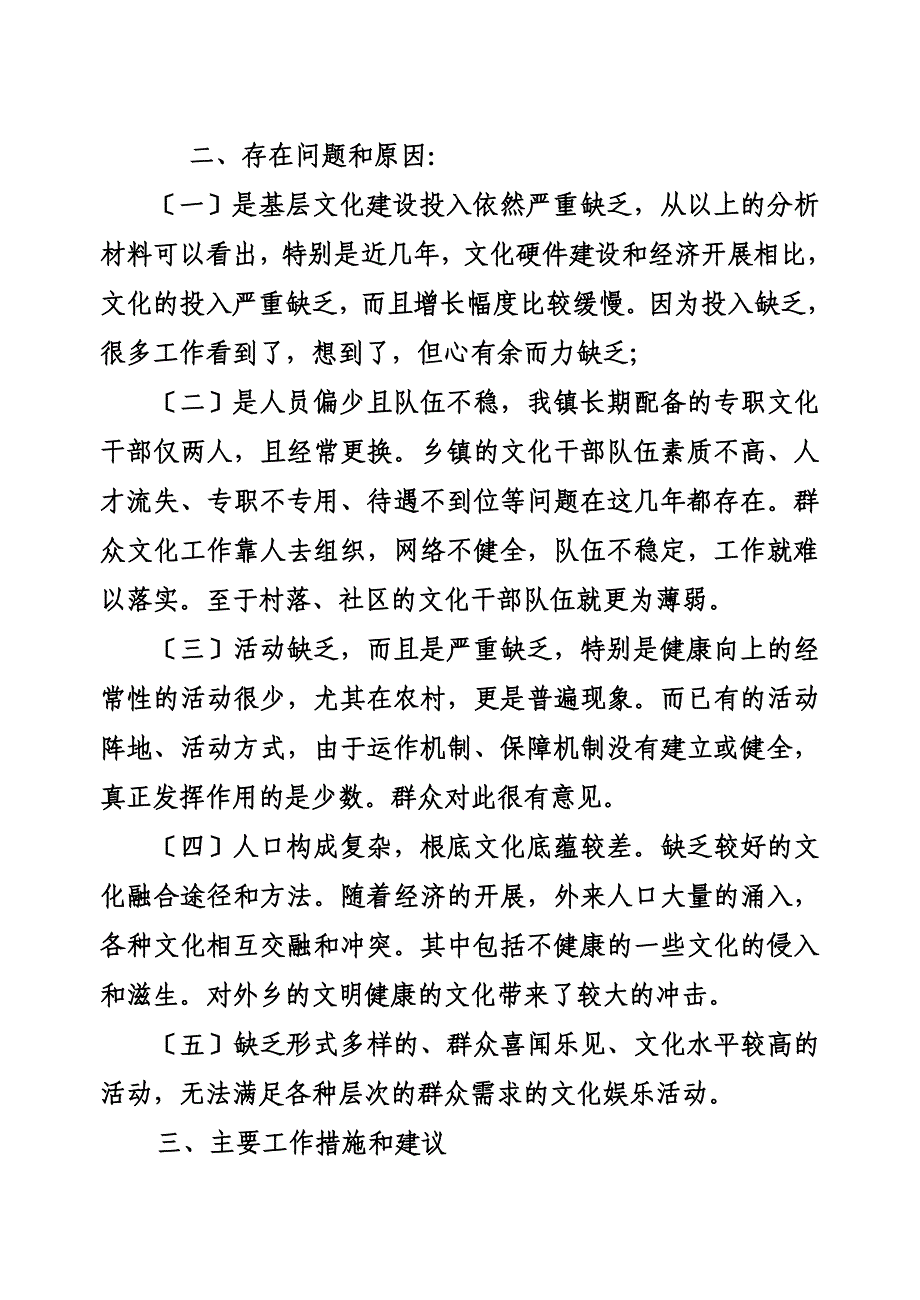 二、存在问题和原因:
〔一〕是基层文化建设投入依然严重缺乏，从以上的分析
材料可以看出，特别是近几年，文化硬件建设和经济开展相比，
文化的投入严重缺乏，而且增长幅度比较缓慢。因为投入缺乏，
很多工作看到了，想到了，但心有余而力缺乏；
〔二〕是人员偏少且队伍不稳，我镇长期配备的专职文化
干部仅两人，且经常更换。乡镇的文化干部队伍素质不高、人
才流失、专职不专用、待遇不到位等问题在这几年都存在。群
众文化工作靠人去组织，网络不健全，队伍不稳定，工作就难
以落实。至于村落、社区的文化干部队伍就更为薄弱。
〔三〕活动缺乏，而且是严重缺乏，特别是健康向上的经
常性的活动很少，尤其在农村，更是普遍现象。而已有的活动
阵地、活动方式，由于运作机制、保障机制没有建立或健全，
真正发挥作用的是少数。群众对此很有意见。
〔四〕人口构成复杂，根底文化底蕴较差。缺乏较好的文
化融合途径和方法。随着经济的开展，外来人口大量的涌入，
各种文化相互交融和冲突。其中包括不健康的一些文化的侵入
和滋生。对外乡的文明健康的文化带来了较大的冲击。
〔五〕缺乏形式多样的、群众喜闻乐见、文化水平较高的
活动，无法满足各种层次的群众需求的文化娱乐活动。
三、主要工作措施和建议